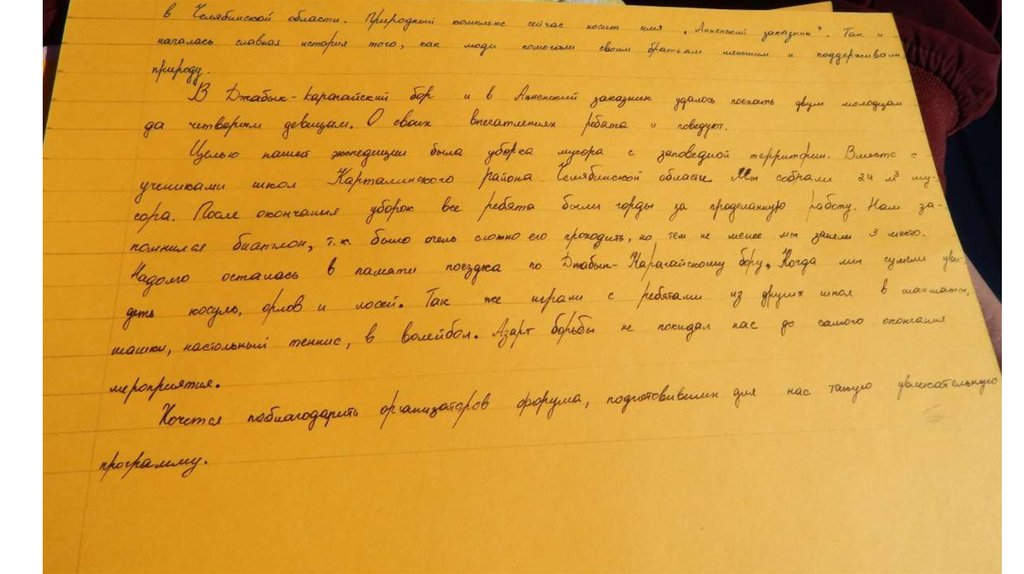 в Челябинской области. Природный комплекс сейчас носит имя „Анненский заказник". Так и
началась славная история того, как люди помогали своим братьям меньшим и поддерживали
природу.
В Джабык-Карагайский бор и в Анненский заказник удалось поехать двум молодцам
да четверым девицам. О своих впечатлениях ребята и поведуют.
Целью нашей экспедиции была уборка мусора с заповедной территории. Вместе с
учениками школ Карталинского района Челябинской области мы собрали 24 м³ му-
сора. После окончания уборок все ребята были горды за проделанную работу. Нам за-
помнился биатлон, т.к. было очень сложно его проходить, но тем не менее мы заняли 3 место.
Надолго осталась в памяти поездка по Джабык-Карагайскому бору. Когда мы сумели уви-
деть косуль, орлов и лосей. Так же играли с ребятами из других школ в шахматы,
шашки, настольный теннис, в волейбол. Азарт борьбы не покидал нас до самого окончания
мероприятия.
Хочется поблагодарить организаторов форума, подготовившим для нас такую увлекательную
программу.